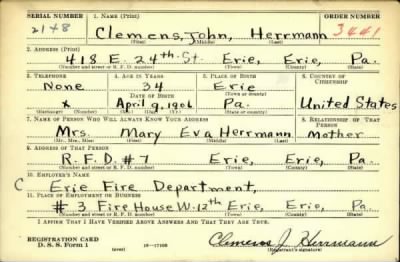 SERIAL NUMBER 1. NAME (Print) ORDER NUMBER
2148 Clemens, John, Herrmann 3441
(First) (Middle) (Last)
2. ADDRESS (Print)
418 E. 24th. St. Erie, Erie, Pa.
(Number and street or R. F. D. number) (Town) (County) (State)
3. TELEPHONE 4. AGE IN YEARS 5. PLACE OF BIRTH 6. COUNTRY OF CITIZENSHIP
None 34 Erie
DATE OF BIRTH (Town or county)
x April 9, 1906 Pa. United States
(Exchange) (Number) (Mo.) (Day) (Yr.) (State or country)
7. NAME OF PERSON WHO WILL ALWAYS KNOW YOUR ADDRESS 8. RELATIONSHIP OF THAT PERSON
Mrs. Mary Eva Herrmann Mother
(Mr., Mrs., Miss) (First) (Middle) (Last)
9. ADDRESS OF THAT PERSON
R.F.D. #7 Erie, Erie, Pa.
(Number and street or R. F. D. number) (Town) (County) (State)
10. EMPLOYER'S NAME
C Erie Fire Department,
11. PLACE OF EMPLOYMENT OR BUSINESS
#3 Fire House W. 12th Erie, Erie, Pa.
(Number and street or R. F. D. number) (Town) (County) (State)
I AFFIRM THAT I HAVE VERIFIED ABOVE ANSWERS AND THAT THEY ARE TRUE.
REGISTRATION CARD
D. S. S. Form 1 (over) 16—17105 Clemens J. Herrmann
(Registrant's signature)